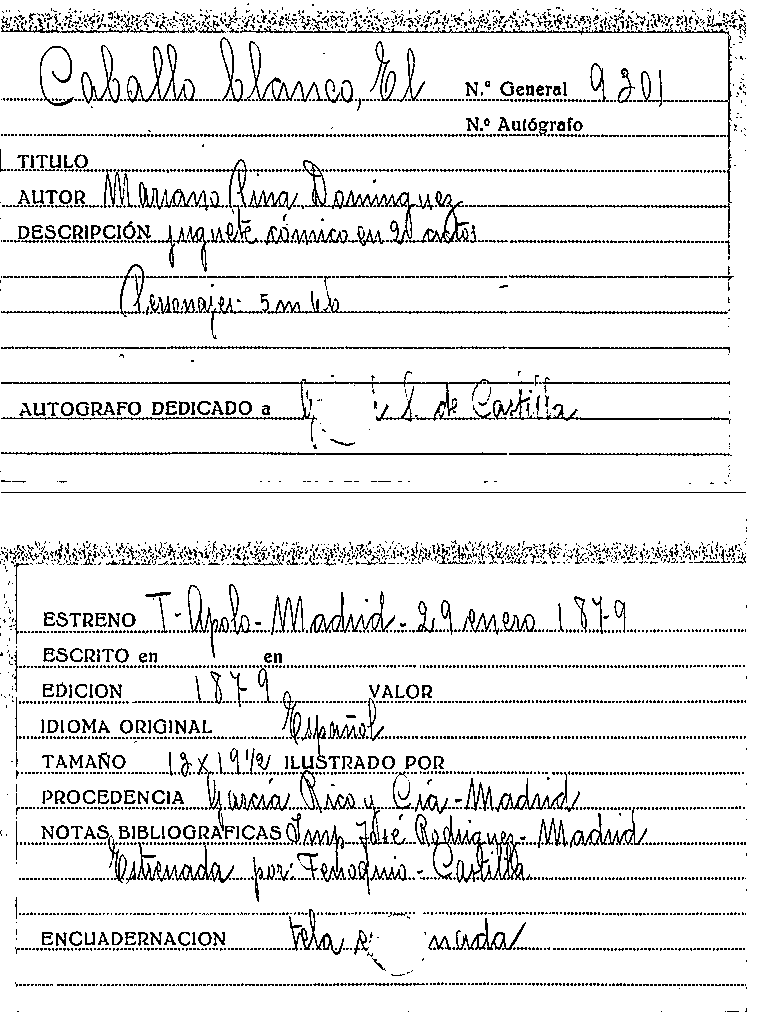 Caballo blanco, El N.º General 9301
N.º Autógrafo
TITULO
AUTOR Mariano Pina Dominguez
DESCRIPCIÓN juguete cómico en 2 actos
Personajes: 5 m
AUTOGRAFO DEDICADO a S. de Castilla
ESTRENO T-Apolo-Madrid-29 enero 1879
ESCRITO en en
EDICION 1879 VALOR
IDIOMA ORIGINAL Español
TAMAÑO 13 x 19 1/2 ILUSTRADO POR
PROCEDENCIA García Rico y Cía-Madrid
NOTAS BIBLIOGRAFICAS Imp José Rodriguez-Madrid
Estrenada por: - Castilla
ENCUADERNACION tela